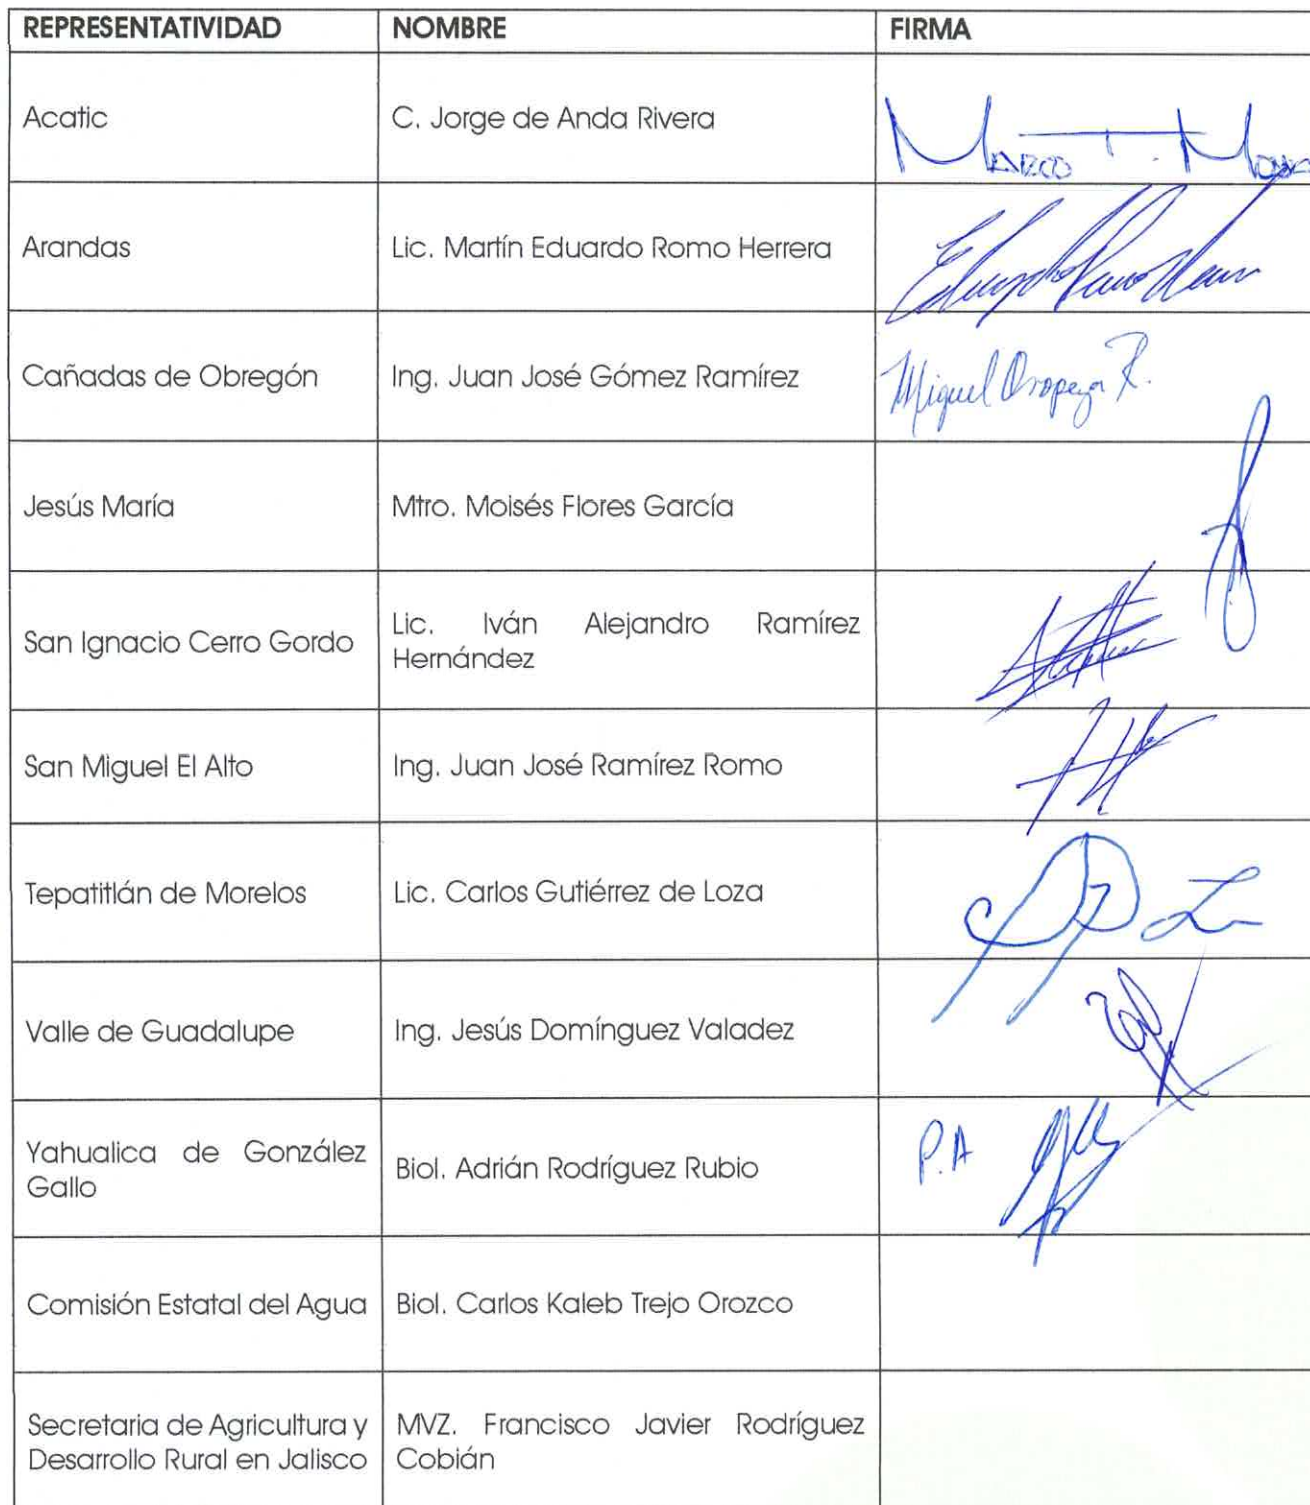 REPRESENTATIVIDAD NOMBRE FIRMA
Acatic C. Jorge de Anda Rivera
Arandas Lic. Martín Eduardo Romo Herrera
Cañadas de Obregón Ing. Juan José Gómez Ramírez Miguel Oropeza R.
Jesús María Mtro. Moisés Flores García
San Ignacio Cerro Gordo Lic. Iván Alejandro Ramírez
Hernández
San Miguel El Alto Ing. Juan José Ramírez Romo
Tepatitlán de Morelos Lic. Carlos Gutiérrez de Loza
Valle de Guadalupe Ing. Jesús Domínguez Valadez
Yahualica de González
Gallo
Biol. Adrián Rodríguez Rubio P.A
Comisión Estatal del Agua Biol. Carlos Kaleb Trejo Orozco
Secretaria de Agricultura y
Desarrollo Rural en Jalisco
MVZ. Francisco Javier Rodríguez
Cobián